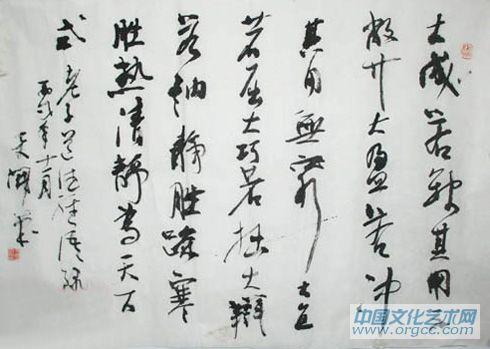 大成若缺其用不
弊大盈若冲
其用無窮大直
若屈大巧若拙大辯
若讷静胜躁寒
胜熱清静為天下
式 老子道德经语録
丙戌年十一月
中国文化艺术网
www.orgcc.com